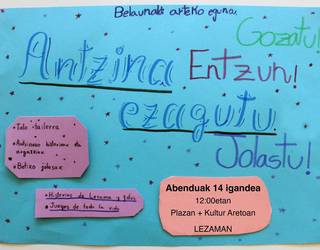 Belaunaldi arteko eguna
Gozatu!
Antzina Entzun!
ezagutu
Jolastu!
• Talo tailerra
• Antzinako historiaren eta argazkiak
• Betiko jolasak
• Historias de Lezama y fotos
• Juegos de toda la vida
Abenduak 14 igandea
12:00etan
Plazan + Kultur Aretoan
LEZAMAN